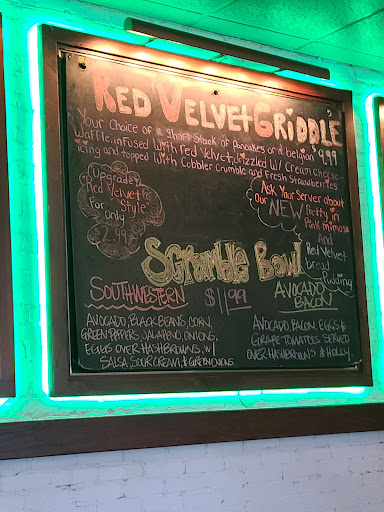 Red Velvet Griddle
Your Choice of a short stack of Pancakes or a belgian
Waffle infused with red velvet, drizzled w/ cream cheese $9.99
icing and topped with Cobbler Crumble and Fresh Strawberries
Upgrade
Red Velvet
Style
For only
2.99
Ask Your Server about
Our NEW
Pretty in
Pink mimosa
And
Red Velvet
bread
Pudding
Scramble Bowl
SOUTHWESTERN
$11.99
AVOCADO, BLACK BEANS, CORN,
GREEN PEPPERS, JALAPENO, ONIONS,
EGGS OVER HASHBROWNS, W/
SALSA, SOUR CREAM, & GREEN ONIONS.
AVOCADO
BACON
AVOCADO, BACON, EGGS &
GRAPE TOMATOES SERVED
OVER HASHBROWNS &